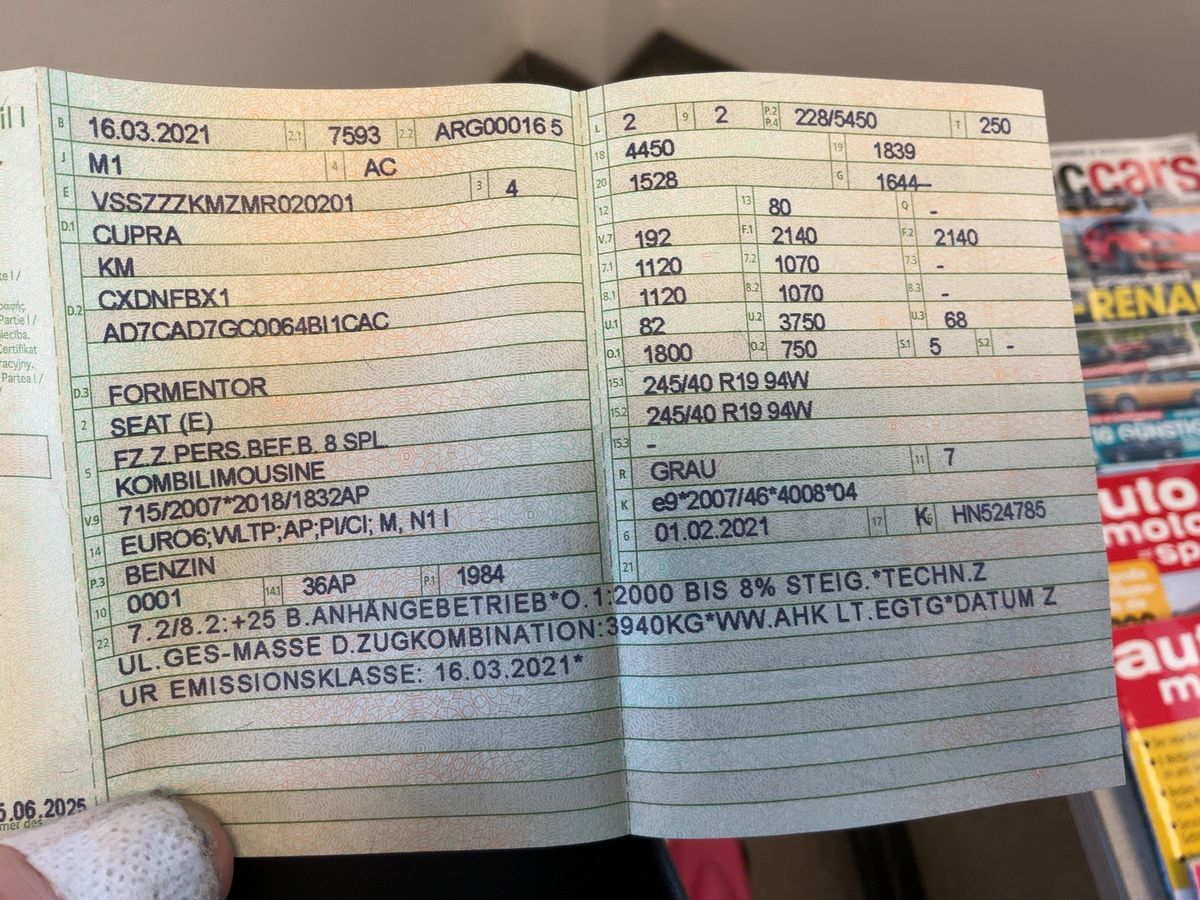 il I
B 16.03.2021 2.1 7593 2.2 ARG00016 5
J M1 4 AC
E VSSZZZKMZMR020201 3 4
D.1 CUPRA
KM
D.2 CXDNFBX1
AD7CAD7GC0064BI1CAC
D.3 FORMENTOR
2 SEAT (E)
5 FZ.Z.PERS.BEF.B. 8 SPL.
KOMBILIMOUSINE
V.9 715/2007*2018/1832AP
14 EURO6;WLTP;AP;PI/CI; M, N1 I
P.3 BENZIN
10 0001 14.1 36AP P.1 1984
L 2 9 2 P.2 P.4 228/5450 T 250
18 4450 19 1839
20 1528 G 1644-
12 13 80 Q -
V.7 192 F.1 2140 F.2 2140
7.1 1120 7.2 1070 7.3 -
8.1 1120 8.2 1070 8.3 -
U.1 82 U.2 3750 U.3 68
O.1 1800 O.2 750 S.1 5 S.2 -
15.1 245/40 R19 94W
15.2 245/40 R19 94W
15.3 -
R GRAU 11 7
K e9*2007/46*4008*04
6 01.02.2021 17 K 16 HN524785
21
22 7.2/8.2:+25 B.ANHÄNGEBETRIEB*O.1:2000 BIS 8% STEIG.*TECHN.Z
UL.GES-MASSE D.ZUGKOMBINATION:3940KG*WW.AHK LT.EGTG*DATUM Z
UR EMISSIONSKLASSE: 16.03.2021*
te I /
Partie I /
Certifikat
racyjny.
Partea I /
5.06.2025
mer des
cars
-RENAU
auto
motor
sp
au
m